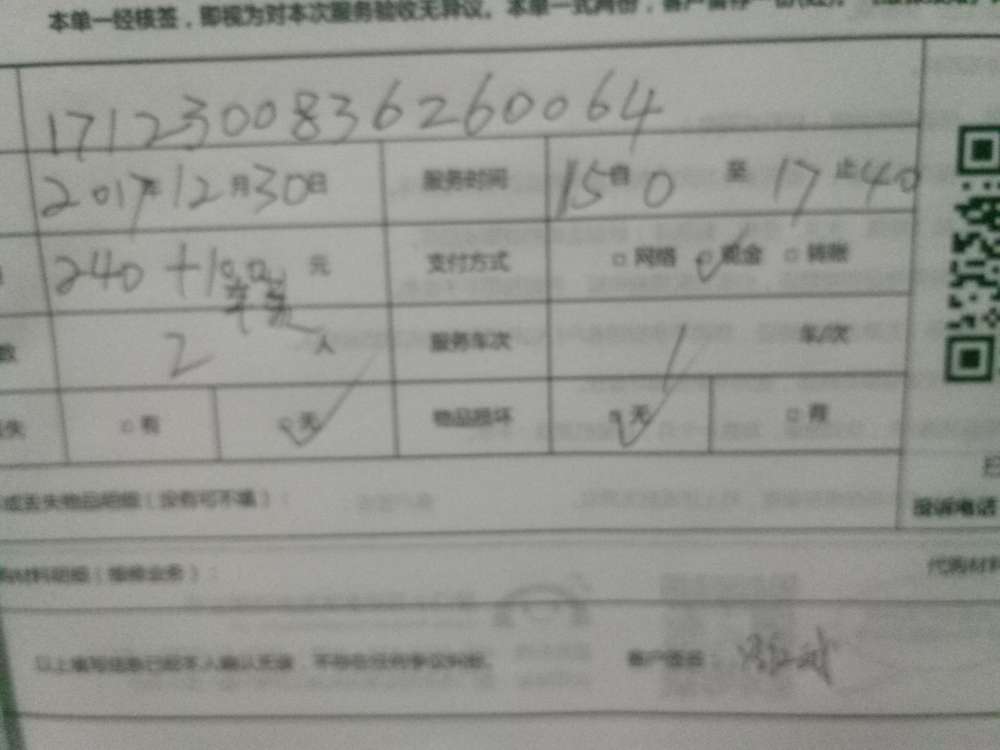 本单一经核签，即视为对本次服务验收无异议。本单一式两份，客户留存一份
1712300836260064
2017年12月30日 服务时间 15自0 至 17止40
240+100 元 支付方式 □网络 □现金 □转账
数 2 人 服务车次 1 车/次
失 □有 □无 物品损坏 □无 □有
或丢失物品明细（没有可不填）： 投诉电话
材料明细（维修业务）： 代购材料
以上填写信息已经本人确认无误，不存在任何争议纠纷。 客户签名：